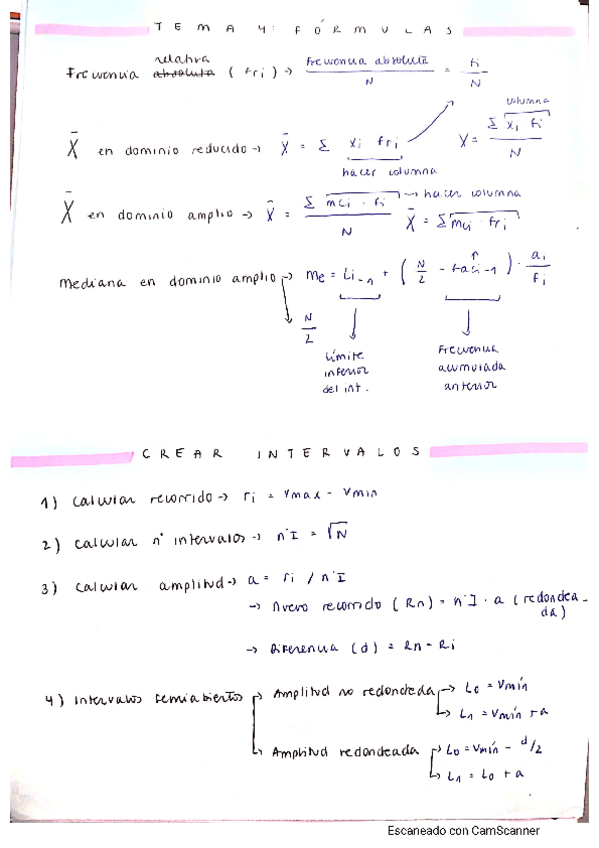 TEMA 4: FÓRMULAS
relativa
Frecuencia absoluta (fri) → frecuencia absoluta / N = fi / N
columna
X̄ en dominio reducido → X̄ = Σ xi fri X = Σ xi fi / N
hacer columna
X̄ en dominio amplio → X̄ = Σ mci · fi / N → hacer columna X̄ = Σ mci · fri
Mediana en dominio amplio → Me = Li-1 + (N/2 - faci-1) · ai / fi
N/2
Límite inferior del int.
Frecuencia acumulada anterior
CREAR INTERVALOS
1) Calcular recorrido → ri = Vmax - Vmin
2) Calcular nº intervalos → nºI = √N
3) Calcular amplitud → a = ri / nºI
→ Nuevo recorrido (Rn) = nºI · a (redondea-
da)
→ Diferencia (d) = Rn - Ri
4) Intervalos semiabiertos → Amplitud no redondeada → L0 = Vmín
→ L1 = Vmín + a
→ Amplitud redondeada → L0 = Vmín - d/2
→ L1 = L0 + a
Escaneado con CamScanner